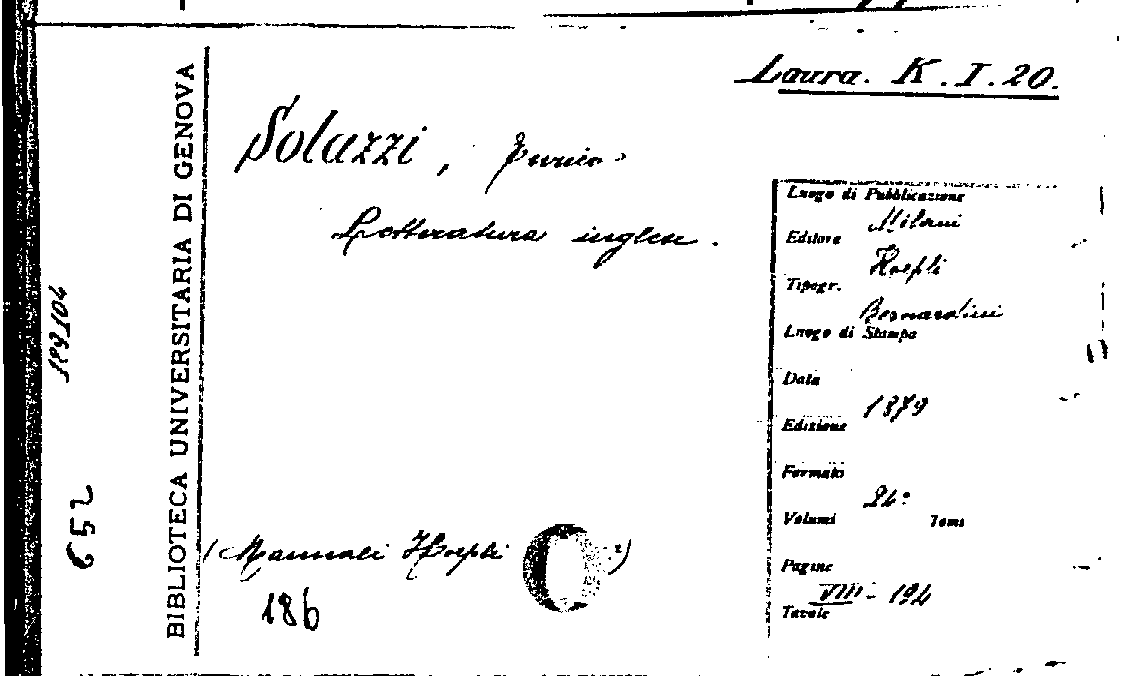 Laura. K. I. 20.
Solazzi,
Letteratura inglese.
BIBLIOTECA UNIVERSITARIA DI GENOVA
189104
652
Luogo di Pubblicazione
Milani
Editore
Hoepli
Tipogr.
Bernardini
Luogo di Stampa
Data
1879
Edizione
Formato
24°
Volumi Tomi
Pagine
VIII - 194
Tavole
(Manuali Hoepli
186